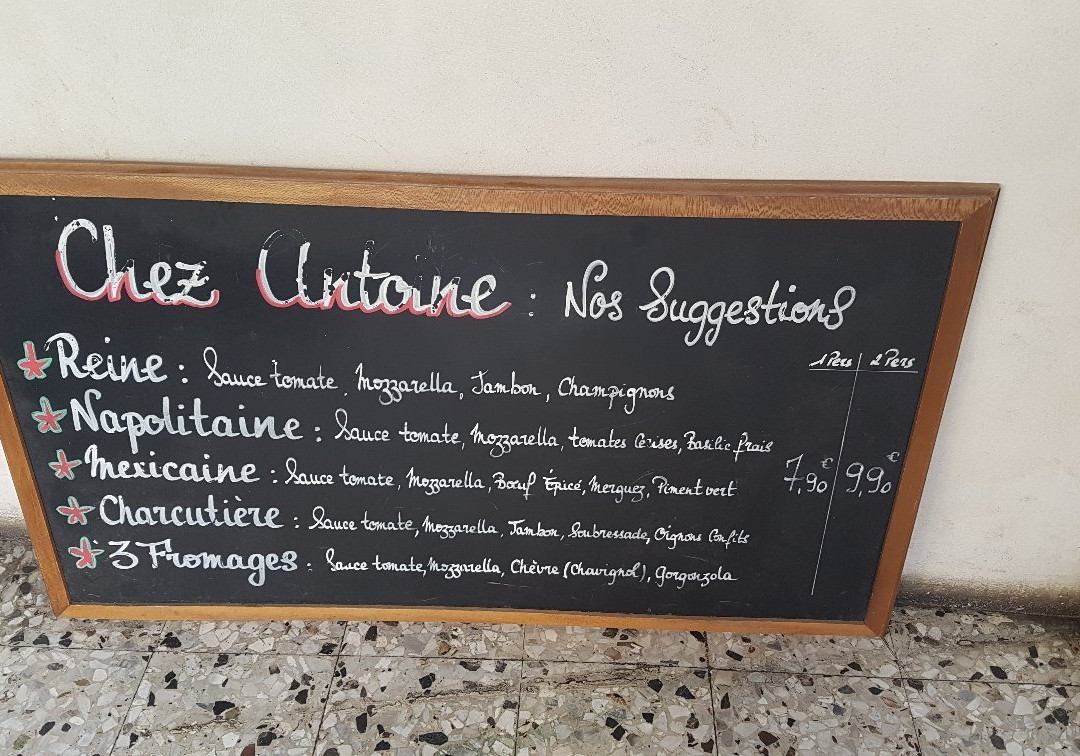 Chez Antoine : Nos Suggestions
1 Pers 2 Pers
Reine : Sauce tomate, Mozzarella, Jambon, Champignons
Napolitaine : Sauce tomate, Mozzarella, tomates Cerises, Basilic frais
Mexicaine : Sauce tomate, Mozzarella, Bœuf Épicé, Merguez, Piment vert
7,90€ 9,90€
Charcutière : Sauce tomate, Mozzarella, Jambon, Soubressade, Oignons Confits
3 Fromages : Sauce tomate, Mozzarella, Chèvre (Chavignol), Gorgonzola